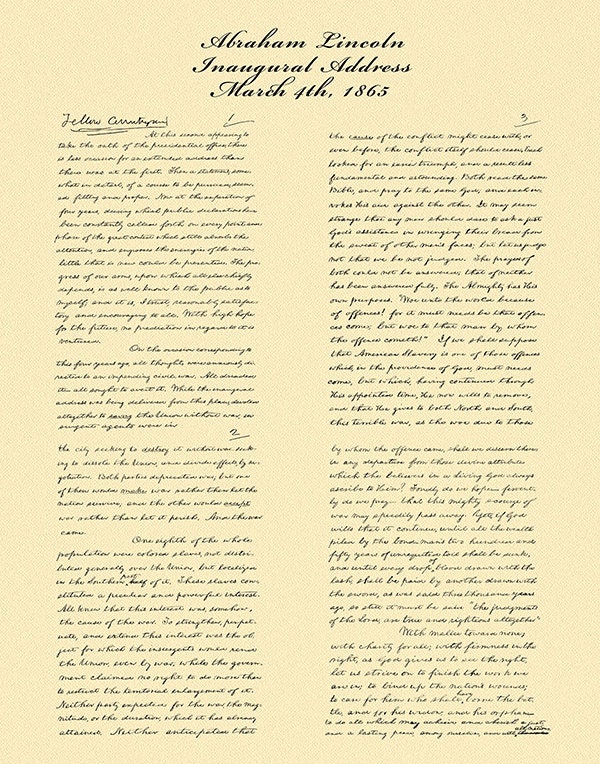 Abraham Lincoln
Inaugural Address
March 4th, 1865
Fellow Countrymen
1
At this second appearing to
take the oath of the presidential office, there
is less occasion for an extended address than
there was at the first. Then a statement, some-
what in detail, of a course to be pursued, seem-
ed fitting and proper. Now, at the expiration of
four years, during which public declarations have
been constantly called forth on every point and
phase of the great contest which still absorbs the
attention, and engrosses the energies of the nation,
little that is new could be presented. The pro-
gress of our arms, upon which all else chiefly
depends, is as well known to the public as to
myself; and it is, I trust, reasonably satisfac-
tory and encouraging to all. With high hope
for the future, no prediction in regard to it is
ventured.
On the occasion corresponding to
this four years ago, all thoughts were anxiously di-
rected to an impending civil war. All dreaded
it – all sought to avert it. While the inaugural
address was being delivered from this place, devoted
altogether to saving the Union without war, in-
surgent agents were in
2
the city seeking to destroy it without war – seek-
ing to dissolve the Union, and divide effects, by ne-
gotiation. Both parties deprecated war; but one
of them would make war rather than let the
nation survive; and the other would accept
war rather than let it perish. And the war
came.
One eighth of the whole
population were colored slaves, not distri-
buted generally over the Union, but localized
in the Southern part of it. These slaves con-
stituted a peculiar and powerful interest.
All knew that this interest was, somehow,
the cause of the war. To strengthen, perpet-
uate, and extend this interest was the ob-
ject for which the insurgents would rend
the Union, even by war; while the govern-
ment claimed no right to do more than
to restrict the territorial enlargement of it.
Neither party expected for the war, the mag-
nitude, or the duration, which it has already
attained. Neither anticipated that
3
the cause of the conflict might cease with, or
even before, the conflict itself should cease. Each
looked for an easier triumph, and a result less
fundamental and astounding. Both read the same
Bible, and pray to the same God; and each in-
vokes His aid against the other. It may seem
strange that any men should dare to ask a just
God's assistance in wringing their bread from
the sweat of other men's faces; but let us judge
not that we be not judged. The prayers of
both could not be answered; that of neither
has been answered fully. The Almighty has His
own purposes. "Woe unto the world because
of offences! for it must needs be that offen-
ces come; but woe to that man by whom
the offence cometh!" If we shall suppose
that American Slavery is one of those offences
which, in the providence of God, must needs
come, but which, having continued through
His appointed time, He now wills to remove,
and that He gives to both North and South,
this terrible war, as the woe due to those
by whom the offence came, shall we discern therein
any departure from those divine attributes
which the believers in a living God always
ascribe to Him? Fondly do we hope – fervent-
ly do we pray – that this mighty scourge of
war may speedily pass away. Yet, if God
wills that it continue, until all the wealth
piled by the bond-man's two hundred and
fifty years of unrequited toil shall be sunk,
and until every drop of blood drawn with the
lash, shall be paid by another drawn with
the sword, as was said three thousand years
ago, so still it must be said "the judgments
of the Lord, are true and righteous altogether"
With malice toward none;
with charity for all; with firmness in the
right, as God gives us to see the right,
let us strive on to finish the work we
are in; to bind up the nation's wounds;
to care for him who shall have borne the bat-
tle, and for his widow, and his orphan –
to do all which may achieve and cherish a just,
and a lasting peace, among ourselves, and with all nations